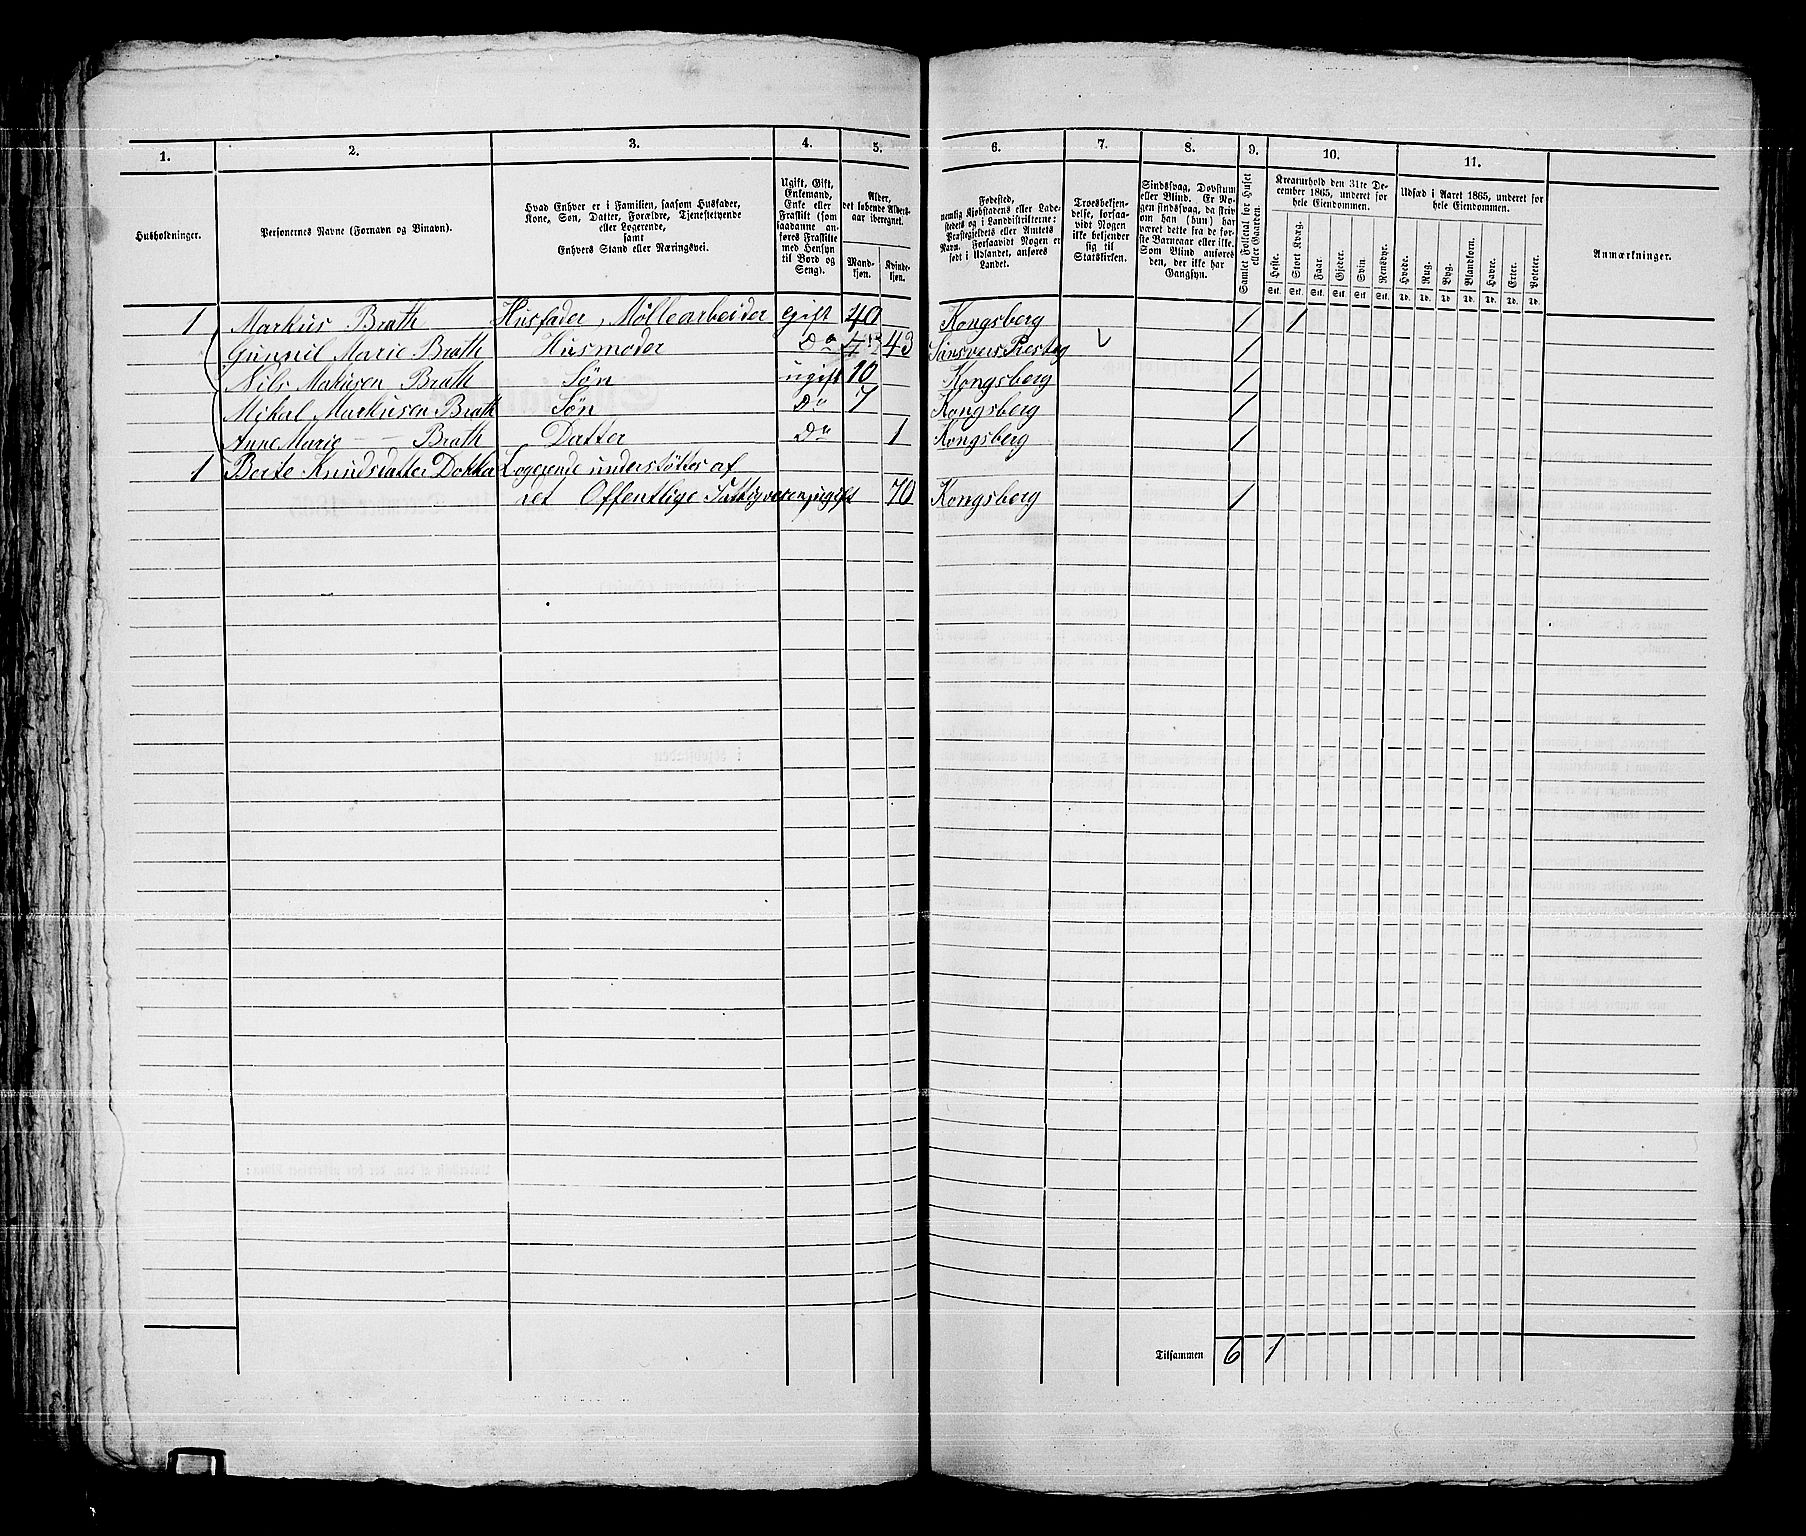 1. 2. 3. 4. 5. 6. 7. 8. 9. 10. 11.
Husholdninger.
Personernes Navne (Fornavn og Binavn).
Hvad Enhver er i Familien, saasom Husfader,
Kone, Søn, Datter, Forældre, Tjenestetyende
eller Logerende,
samt
Enhvers Stand eller Næringsvei.
Ugift, Gift,
Enkemand,
Enke eller
Fraskilt (som
saadanne an-
føres Fraskilte
med Hensyn
til Bord og
Seng).
Alder,
det løbende Alders-
aar iberegnet.
Mand-
kjøn.
Kvinde-
kjøn.
Fødested,
nemlig Kjøbstadens eller Lade-
stedets og i Landdistrikterne:
Præstegjeldets eller Amtets
Navn. Forsaavidt Nogen er
født i Udlandet, anføres
Landet.
Troesbekjen-
delse, forsaa-
vidt Nogen
ikke bekjender
sig til
Statskirken.
Sindssvag, Døvstum
eller Blind. Er No-
gen sindssvag, da skriv
om han (hun) har
været dette fra de før-
ste Barneaar eller ikke.
Som Blind anføres
den, der ikke har
Gangsyn.
Samlet Folketal for Huset
eller Gaarden.
Kreaturhold den 31te De-
cember 1865, underet for
hele Eiendommen.
Heste. Stort Kvæg. Faar. Gjeder. Svin. Rensdyr.
Stk. Stk. Stk. Stk. Stk. Stk.
Udsæd i Aaret 1865, underet for
hele Eiendommen.
Hvede. Rug. Byg. Blandkorn. Havre. Erter. Poteter.
Td. Td. Td. Td. Td. Td. Td.
Anmærkninger.
1 Markus Brath Husfader, Møllearbeider gift 40 Kongsberg 1 1
Gunnil Marie Brath Husmoder Do 43 1
Nils Markusen Brath Søn ugift 10 Kongsberg 1
Mikal Markusen Brath Søn Do 7 Kongsberg 1
Anne Marie — — Brath Datter Do 1 Kongsberg 1
1 Berte Knudsdatter Dokka Logerende understøttes af
det Offentlige Fattigvæsen ugift 70 Kongsberg 1
Tilsammen 6 1